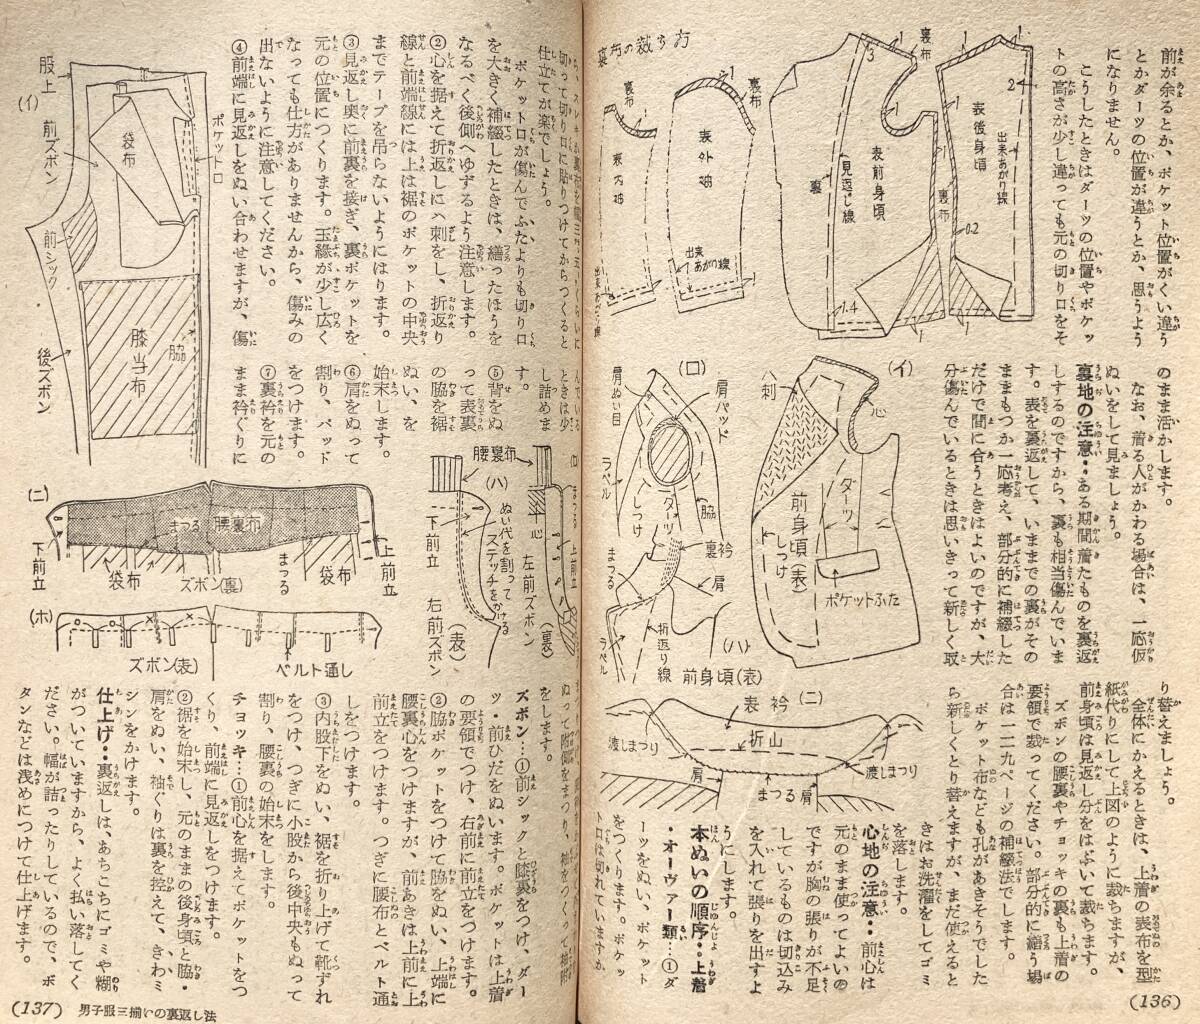 前が余るとか、ポケット位置がくい違う
とかダーツの位置が違うとか、思うよう
になりません。
こうしたときはダーツの位置やポケッ
トの高さが少し違っても元の切り口をそ
のまま活かします。
なお、着る人がかわる場合は、一応仮
ぬいをして見ましょう。
裏地の注意‥ある期間着たものを裏返
しするのですから、裏も相当傷んでいま
す。表を裏返して、いままでの裏がその
ままもつか一応考え、部分的に補綴した
だけで間に合うときはよいのですが、大
分傷んでいるときは思いきって新しく取
り替えましょう。
全体にかえるときは、上着の表布を型
紙代りにして上図のように裁ちますが、
前身頃は見返し分をはぶいて裁ちます。
ズボンの腰裏やチョッキの裏も上着の
要領で裁ってください。部分的に繕う場
合は一二九ページの補綴法でします。
ポケット布なども孔があきそうでした
ら新しくとり替えますが、まだ使えると
きはお洗濯をしてゴミ
を落します。
心地の注意‥前心は
元のまま使ってよいの
ですが胸の張りが不足
しているものは切込み
を入れて張りを出すよ
うにします。
本ぬいの順序‥上着
・オーヴァー類…①ダ
ーツをぬい、ポケット
をつくります。ポケッ
トロは切れていますか
裏布の裁ち方
裏布
表内袖
出来あがり線
裏布
表外袖
出来あがり線
裏布
表前身頃
見返し線
裏
裏布
表後身頃
出来あがり線
1
2
5
0.2
1.4
(イ)
八刺
心
ダーツ
前身頃(表)
しつけ
ポケットふた
(ロ)
肩ぬい目
肩パッド
ラペル
しつけ
ダーツ
脇
裏衿
まつる
肩
ラペル
折返り線
(ハ)
前身頃(表)
(ニ)
表衿
折山
渡しまつり
渡しまつり
肩
まつる
肩
(136)
切って切り口に貼りつけてからつくると
仕立てが楽でしょう。
ポケット口が傷んでふたよりも切り口
を大きく補綴したときは、繕ったほうを
なるべく後側へゆずるよう注意します。
②心を据えて折返しにハ刺をし、折返り
線と前端線には上は裾のポケットの中央
までテープを吊らないようにはります。
③見返し奥に前裏を接ぎ、裏ポケットを
元の位置につくります。玉緣が少し広く
なっても仕方がありませんから、傷みの
出ないように注意してください。
④前端に見返しをぬい合わせますが、傷
んでいる
ときは少
し詰めま
す。
⑤背をぬ
って表裏
の脇を裾
ぬい、を
始末します。
⑥肩をぬって
割り、パッド
をつけます。
⑦裏衿を元の
まま衿ぐりに
をします。
ズボン…①前シックと膝裏をつけ、ダー
ツ・前ひだをぬいます。ポケットは上着
の要領でつけ、右前に前立をつけます。
②脇ポケットをつけて脇をぬい、上端に
腰裏心をつけますが、前あきは上前に上
前立をつけます。つぎに腰布とベルト通
しをつけます。
③内股下をぬい、裾を折り上げて靴ずれ
をつけ、つぎに小股から後中央もぬって
割り、腰裏の始末をします。
チョッキ…①前心を据えてポケットをつ
くり、前端に見返しをつけます。
②裾を始末し、元のままの後身頃と脇・
肩をぬい、袖ぐりは裏を控えて、きわミ
シンをかけます。
仕上げ‥裏返しは、あちこちにゴミや糊
がついていますから、よく払い落してく
ださい。幅が詰ったりしているので、ボ
タンなどは浅めにつけて仕上げます。
股上
(イ)
前ズボン
袋布
ポケット口
前シック
膝当布
脇
後ズボン
腰裏布
(ハ)
下前立
右前ズボン
(表)
ぬい代を割って
ステッチをかける
(ロ)
まつる
心
上前立
左前ズボン
(裏)
(ニ)
まつる
腰裏布
下前立
袋布
ズボン(裏)
まつる
袋布
上前立
(ホ)
ズボン(表)
ベルト通し
(137) 男子服三揃いの裏返し法